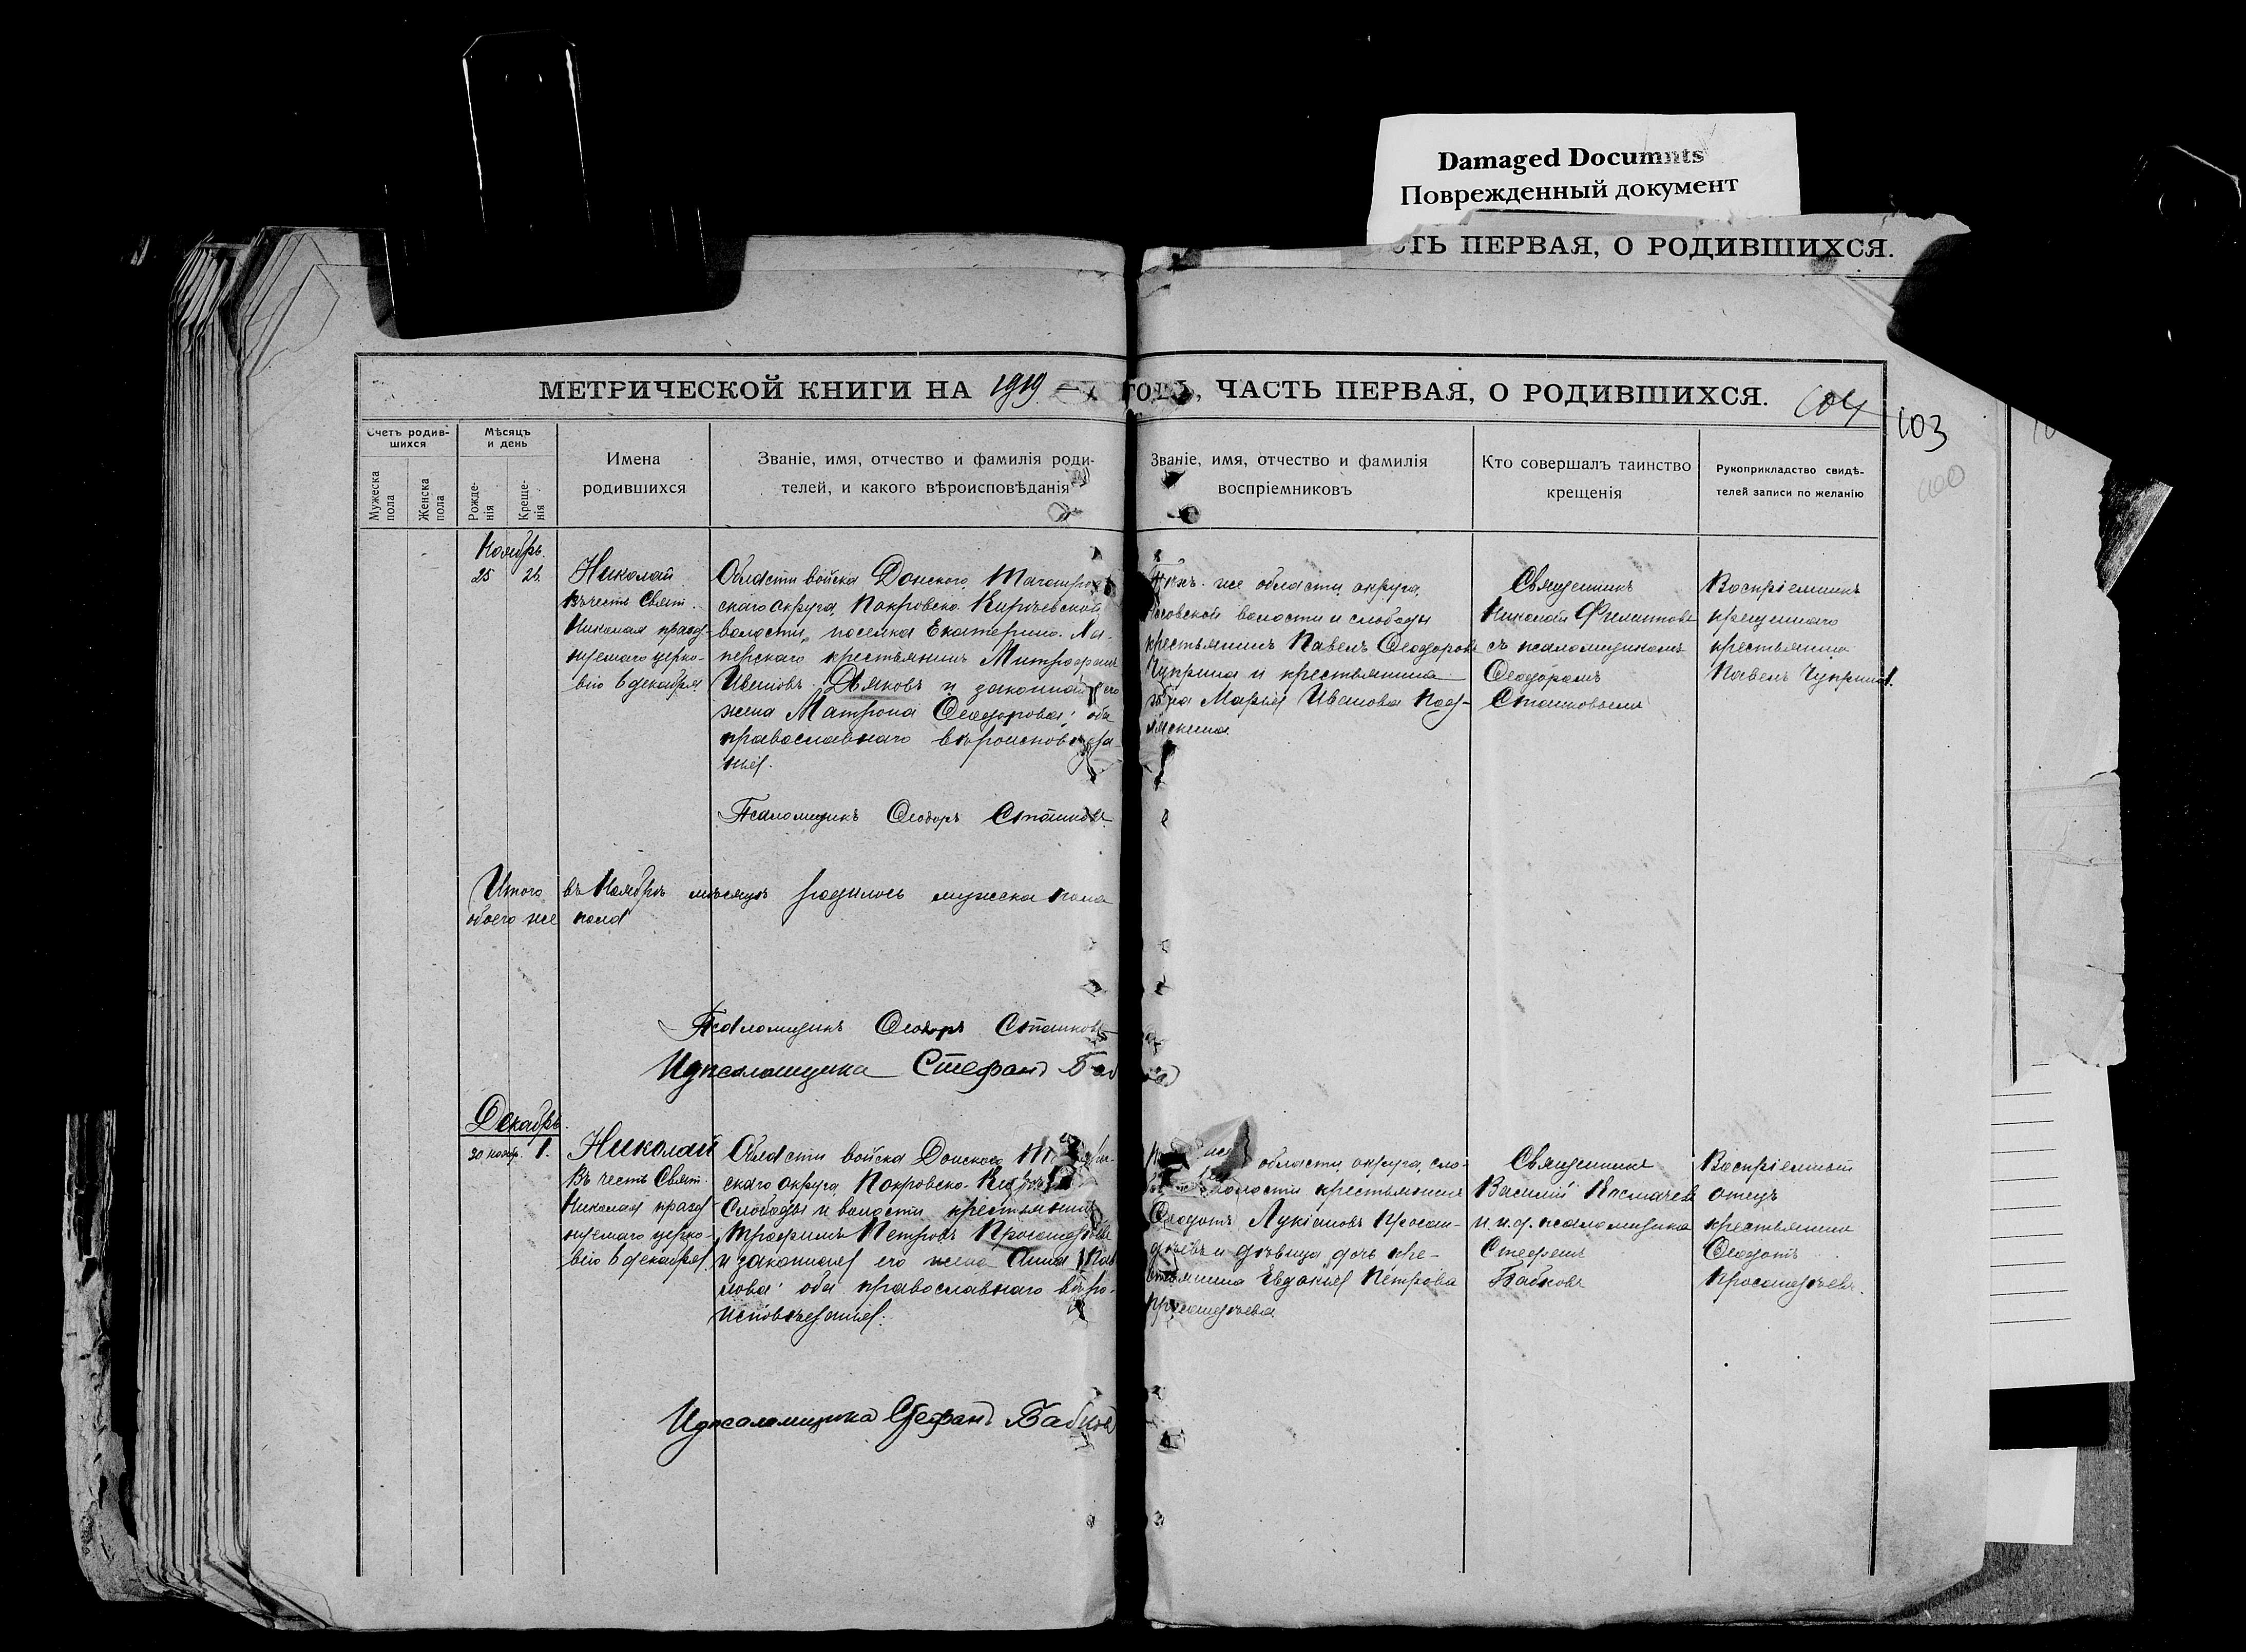 Damaged Documnts
Поврежденный документ
СТЬ ПЕРВАЯ, О РОДИВШИХСЯ.
МЕТРИЧЕСКОЙ КНИГИ НА 1919 ГОДЪ, ЧАСТЬ ПЕРВАЯ, О РОДИВШИХСЯ.
104
103
100
Счетъ родив-
шихся
Мужеска
пола
Женска
пола
Мѣсяцъ
и день
Рожде-
нія
Креще-
нія
Имена
родившихся
Званіе, имя, отчество и фамилія роди-
телей, и какого вѣроисповѣданія
Званіе, имя, отчество и фамилія
воспріемниковъ
Кто совершалъ таинство
крещенія
Рукоприкладство свидѣ-
телей записи по желанію
Ноябрь.
25 26.
Николай
Въ честь Свят.
Николая празд-
нуемаго церко-
вію 6 декабря.
Области войска Донского, Таганрог
скаго округа, Покровско-Киреевской
волости, поселка Екатерино-Ха-
перскаго крестьянинъ Митрофанъ
Ивановъ Дьяковъ и законная его
жена Матрона Ѳеодорова; оба
православнаго вѣроисповѣда-
нія.
же области, округа,
волости и слободы
крестьянинъ Павелъ Ѳеодоровъ
Чуприна и крестьянина
Марья Иванова Под-
Священникъ
Николай Филипповъ
съ псаломщикомъ
Ѳеодоромъ
Сташковымъ
Воспріемникъ
крещеннаго
крестьянинъ
Павелъ Чуприна.
Псаломщикъ Ѳеодоръ Сташковъ
Итого въ Ноябрѣ мѣсяцѣ родилось мужска пола
обоего же пола
Псаломщикъ Ѳеодоръ Сташковъ
И д псаломщика Стефанъ Баб
Декабрь.
30 нояб. 1.
Николай
Въ честь Свят.
Николая празд-
нуемаго церко-
вію 6 декабря.
Области войска Донского,
скаго округа, Покровско-
Слободы и волости крестьянинъ
Трофимъ Петровъ Просандѣевъ
и законная его жена Анна Пав
лова; оба православнаго вѣро-
исповѣданія.
области, округа, сло-
волости крестьянинъ
Ѳеодотъ Лукіановъ Просан-
дѣевъ и дѣвица, дочь кре-
стьянина Евдокія Петрова
Просандѣева.
Священникъ
Василій Космачевъ
и и.д. псаломщика
Стефанъ
Бабковъ
Воспріемный
отецъ
крестьянинъ
Ѳеодотъ
Просандѣевъ.
И д псаломщика Стефанъ Бабков